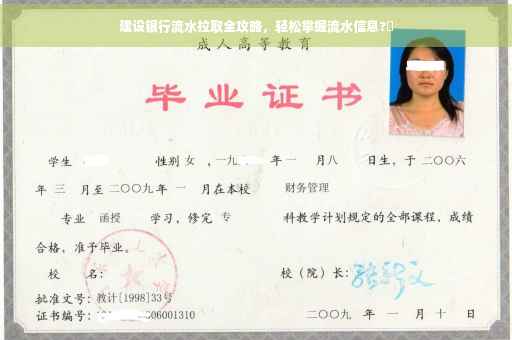 建设银行流水拉取全攻略，轻松掌握流水信息?
成人高等教育
毕业证书
学生 性别 女 ，一九 年一 月八 日生，于二〇〇六
年 三 月至二〇〇九年 一 月在本校 财务管理
专业 函授 学习，修完 专 科教学计划规定的全部课程，成绩
合格，准予毕业。
校 名： 校（院）长：
批准文号：教计[1998]33号
证书编号： 606001310 二〇〇九 年 一 月 十 日